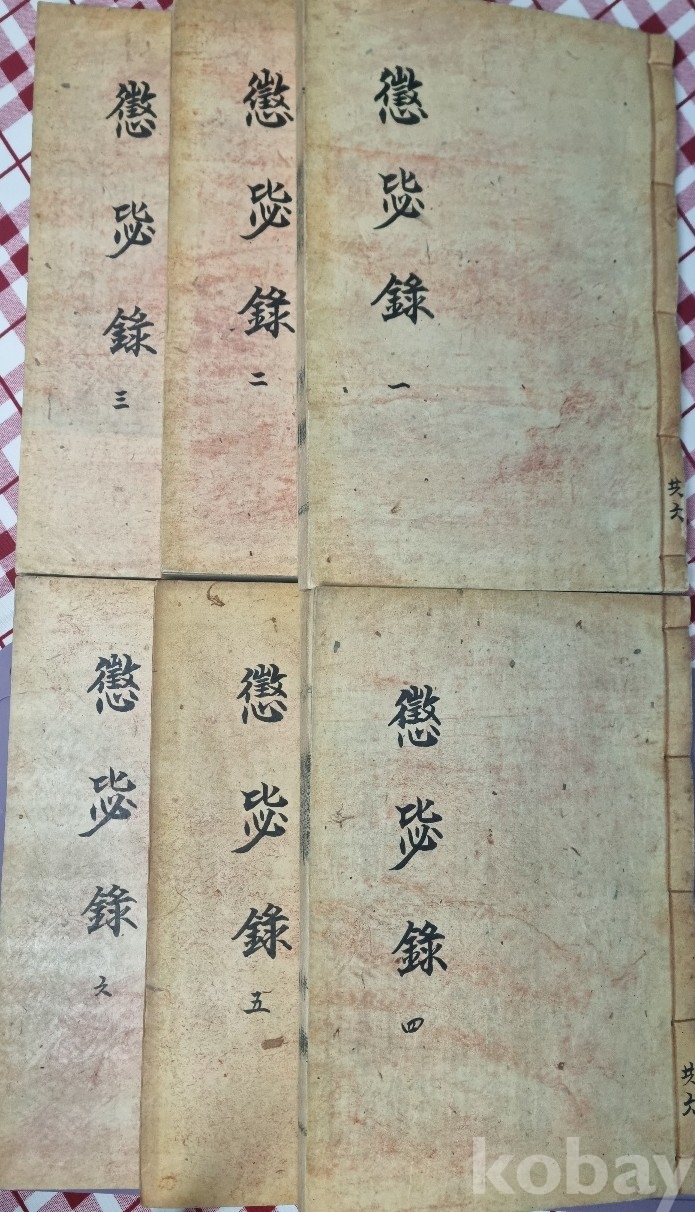 懲毖錄 一
共六
懲毖錄 二
懲毖錄 三
懲毖錄 四
共六
懲毖錄 五
懲毖錄 六
kobay